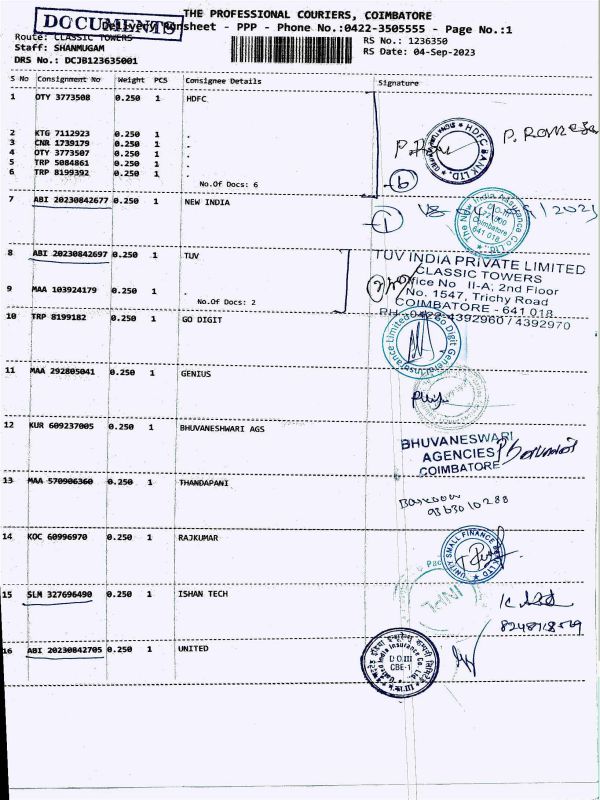 DOCUMENTS
THE PROFESSIONAL COURIERS, COIMBATORE
Delivery Runsheet - PPP - Phone No.:0422-3505555 - Page No.:1
Route: CLASSIC TOWERS
Staff: SHANMUGAM
DRS No.: DCJB123635001
RS No.: 1236350
RS Date: 04-Sep-2023
S No Consignment No Weight PCS Consignee Details Signature
1 OTY 3773508 0.250 1 HDFC
2 KTG 7112923 0.250 1 .
3 CNR 1739179 0.250 1 .
4 OTY 3773507 0.250 1 .
5 TRP 5084861 0.250 1 .
6 TRP 8199392 0.250 1 .
No.Of Docs: 6
HDFC BANK LTD.
6
7 ABI 20230842677 0.250 1 NEW INDIA
1
The New India Assurance Co. Ltd.
Coimbatore
641 018
8 ABI 20230842697 0.250 1 TUV
9 MAA 103924179 0.250 1 .
No.Of Docs: 2
TUV INDIA PRIVATE LIMITED
CLASSIC TOWERS
Office No II-A, 2nd Floor
No. 1547, Trichy Road
COIMBATORE - 641 018.
PH : 0422-4392960 / 4392970
10 TRP 8199182 0.250 1 GO DIGIT
Go Digit General Insurance Limited
11 MAA 292805041 0.250 1 GENIUS
12 KUR 609237005 0.250 1 BHUVANESHWARI AGS
BHUVANESWARI
AGENCIES
COIMBATORE
13 MAA 570906360 0.250 1 THANDAPANI
14 KOC 60996970 0.250 1 RAJKUMAR
UNITY SMALL FINANCE BANK LTD
15 SLM 327696490 0.250 1 ISHAN TECH
16 ABI 20230842705 0.250 1 UNITED
United India Insurance Co. Ltd.
D.O.III
CBE-1